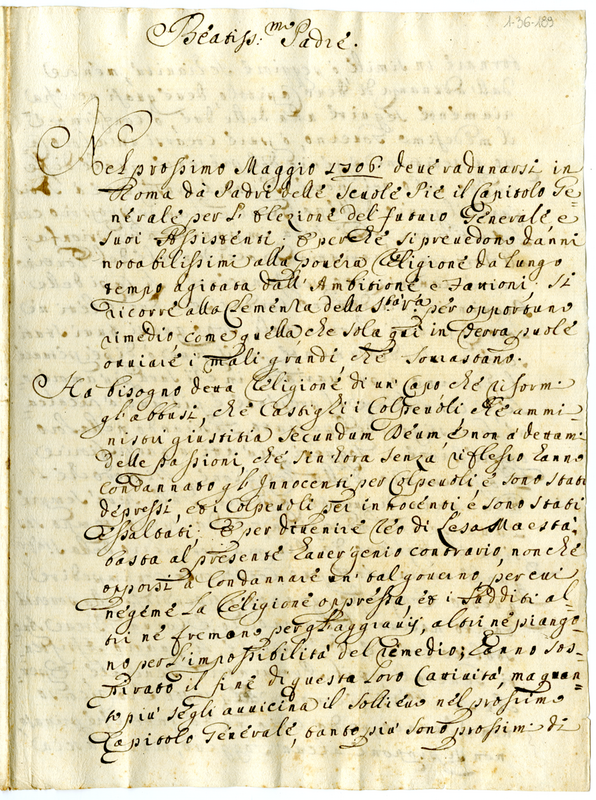 1-36-189
Beatiss.mo Padre.
Nel prossimo Maggio 1706 deve radunarsi in
Roma da Padri delle Scuole Pie il Capitolo Ge=
nerale per l'Elezione del futuro Generale, e
suoi Assistenti; e perche si prevedono danni
notabilissimi alla povera Religione da lungo
tempo agitata dall'Ambitione e fationi, si
ricorre alla Clemenza della S.tà V.ra per opportuno
rimedio, come quella, che sola qui in Terra puole
ovviare i mali grandi, che sovrastano.
Ha bisogno detta Religione, di un Capo che riformi
gl'abbusi, che Castighi i Colpevoli che ammi=
nistri giustitia secundum Deum, e non a dettame
delle passioni, che sin'hora senza riflesso hanno
condannato gl'Innocenti per colpevoli, e sono stati
depressi, et i Colpevoli per innocenti, e sono stati
essaltati; e per divenire reo di Lesa Maestà,
basta al presente haver genio contrario, non che
opporsi a Condannare un tal governo, per cui
ne geme la Religione oppressa, et i sudditi al=
tri ne fremono per gl'aggravij, altri ne piango=
no per l'impossibilità del remedio; hanno sos=
pirato il fine di questa loro Cattività, ma quan=
to più segli avvicina il sollievo nel prossimo
Capitolo Generale, tanto più sono prossimi di